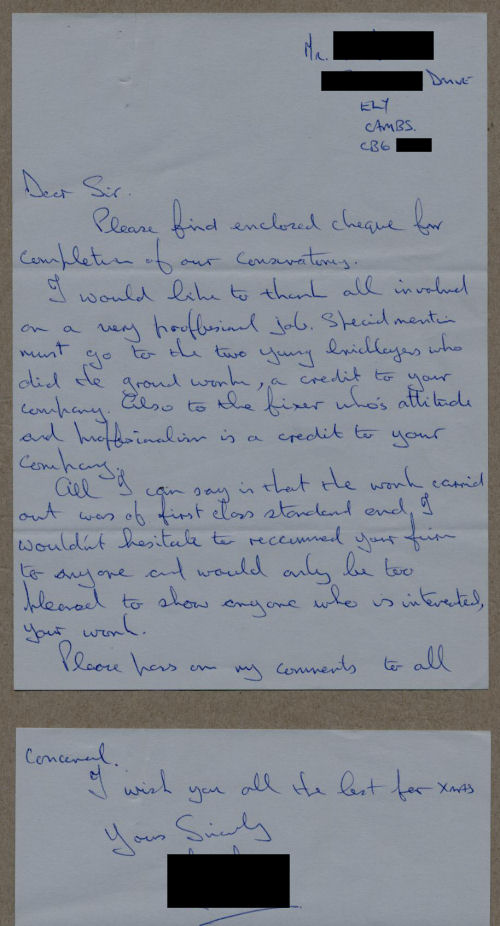 Mr.
Drive
ELY
CAMBS.
CB6
Dear Sir.
Please find enclosed cheque for
completion of our conservatory.
I would like to thank all involved
on a very proffesional job. Special mention
must go to the two young bricklayers who
did the ground work, a credit to your
company. Also to the fixer who's attitude
and proffesionalism is a credit to your
company.
All I can say is that the work carried
out was of first class standard and, I
wouldn't hesitate to reccomend your firm
to anyone and would only be too
pleased to show anyone who is interested,
your work.
Please pass on my comments to all
concerned.
I wish you all the best for XMAS
Yours Sincerely